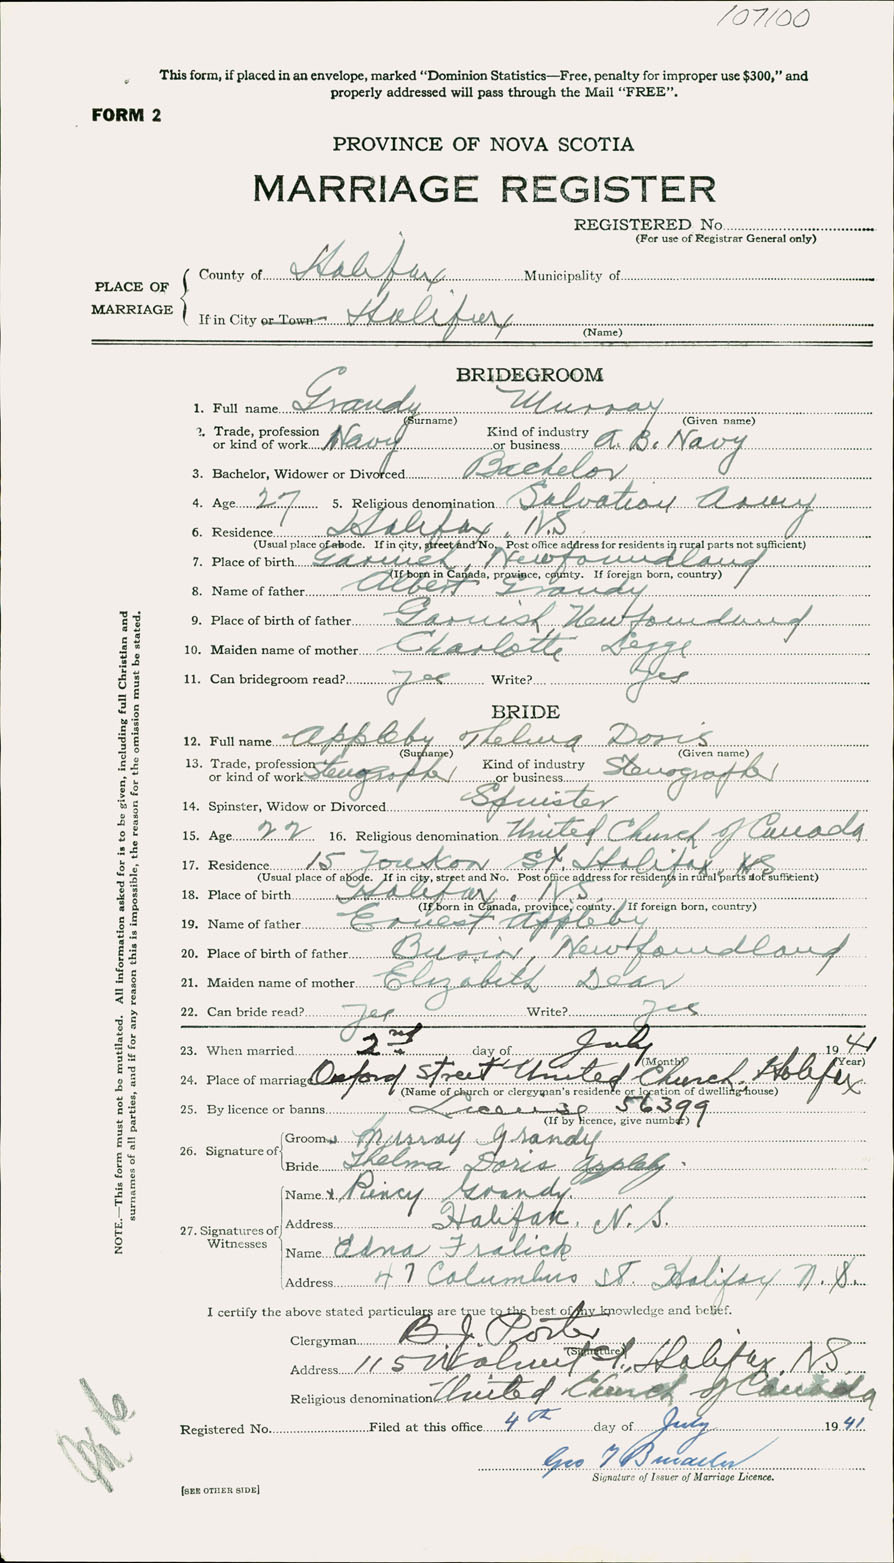 107100
This form, if placed in an envelope, marked "Dominion Statistics—Free, penalty for improper use $300," and
properly addressed will pass through the Mail "FREE".
FORM 2
PROVINCE OF NOVA SCOTIA
MARRIAGE REGISTER
REGISTERED No.
(For use of Registrar General only)
PLACE OF MARRIAGE
County of Halifax Municipality of
If in City or Town Halifax
(Name)
BRIDEGROOM
1. Full name Grandy Murray
(Surname) (Given name)
2. Trade, profession or kind of work Navy Kind of industry or business A.B. Navy
3. Bachelor, Widower or Divorced Bachelor
4. Age 27 5. Religious denomination Salvation Army
6. Residence Halifax, N.S
(Usual place of abode. If in city, street and No. Post office address for residents in rural parts not sufficient)
7. Place of birth Garnish, Newfoundland
(If born in Canada, province, county. If foreign born, country)
8. Name of father Albert Grandy
9. Place of birth of father Garnish, Newfoundland
10. Maiden name of mother Charlotte Legge
11. Can bridegroom read? Yes Write? Yes
BRIDE
12. Full name Appleby Thelma Doris
(Surname) (Given name)
13. Trade, profession or kind of work Stenographer Kind of industry or business Stenographer
14. Spinster, Widow or Divorced Spinster
15. Age 22 16. Religious denomination United Church of Canada
17. Residence 15 Youkon St, Halifax, NS
(Usual place of abode. If in city, street and No. Post office address for residents in rural parts not sufficient)
18. Place of birth Halifax, NS
(If born in Canada, province, county. If foreign born, country)
19. Name of father Ernest Appleby
20. Place of birth of father Burin, Newfoundland
21. Maiden name of mother Elizabeth Dear
22. Can bride read? Yes Write? Yes
23. When married 2nd day of July 1941
(Month) (Year)
24. Place of marriage Oxford Street United Church, Halifax
(Name of church or clergyman's residence or location of dwelling house)
25. By licence or banns License 56399
(If by licence, give number)
26. Signature of
Groom Murray Grandy
Bride Thelma Doris Appleby.
27. Signatures of Witnesses
Name Grandy
Address Halifax, N.S.
Name Edna Fralick
Address 47 Columbus St. Halifax N.S.
I certify the above stated particulars are true to the best of my knowledge and belief.
Clergyman B J Porter
(Signature)
Address 115 Walnut St., Halifax, NS
Religious denomination United Church of Canada
Registered No. Filed at this office 4th day of July 1941
Geo
Signature of Issuer of Marriage Licence.
[SEE OTHER SIDE]
NOTE.—This form must not be mutilated. All information asked for is to be given, including full Christian and
surnames of all parties, and if for any reason this is impossible, the reason for the omission must be stated.